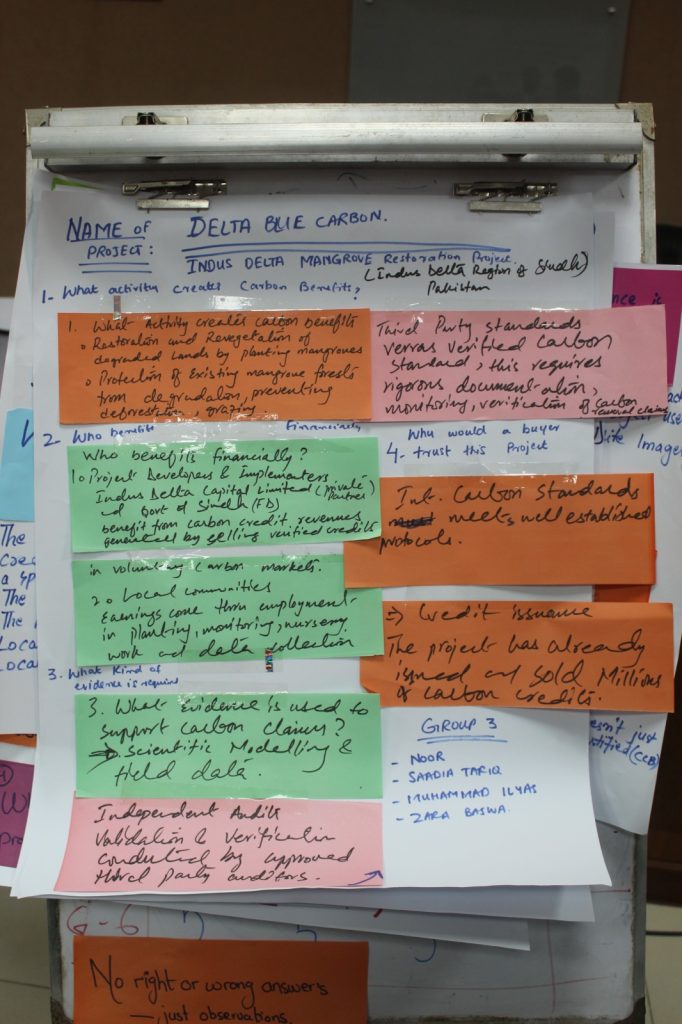 NAME OF PROJECT: DELTA BLUE CARBON.
INDUS DELTA MANGROVE Restoration Project.
(Indus Delta Region of Sindh)
Pakistan
1- What activity creates Carbon Benefits?
1. What Activity creates carbon benefits
o Restoration and Revegetation of
degraded Lands by planting mangroves
o Protection of Existing mangrove forests
from degradation, preventing
deforestation, grazing.
Third Party Standards
verras verified Carbon
Standard, this requires
rigorous documentation,
monitoring, verification of carbon
removal claims
2- Who benefits financially
Who benefits financially?
1 o Project Developers & Implementers
Indus Delta Capital Limited (private
partner)
Govt of Sindh (FD)
benefit from carbon credit revenues
generated by selling verified credits
in voluntary carbon markets.
2 o Local communities
Earnings come thru employment
in planting, monitoring, nursery
work and data collection
3. What Kind of
evidence is required
3. What Evidence is used to
support carbon claims?
Scientific Modelling &
Field data.
Independent Audits
Validation & Verification
conducted by approved
third party auditors.
Why would a buyer
4- trust this Project
Int. Carbon Standards
meets well established
protocols.
⇒ Credit issuance
The project has already
issued and sold Millions
of carbon credits.
GROUP 3
- NOOR
- SAADIA TARIQ
- MUHAMMAD ILYAS
- ZARA BASWA.
G-6
No right or wrong answers
— just observations.